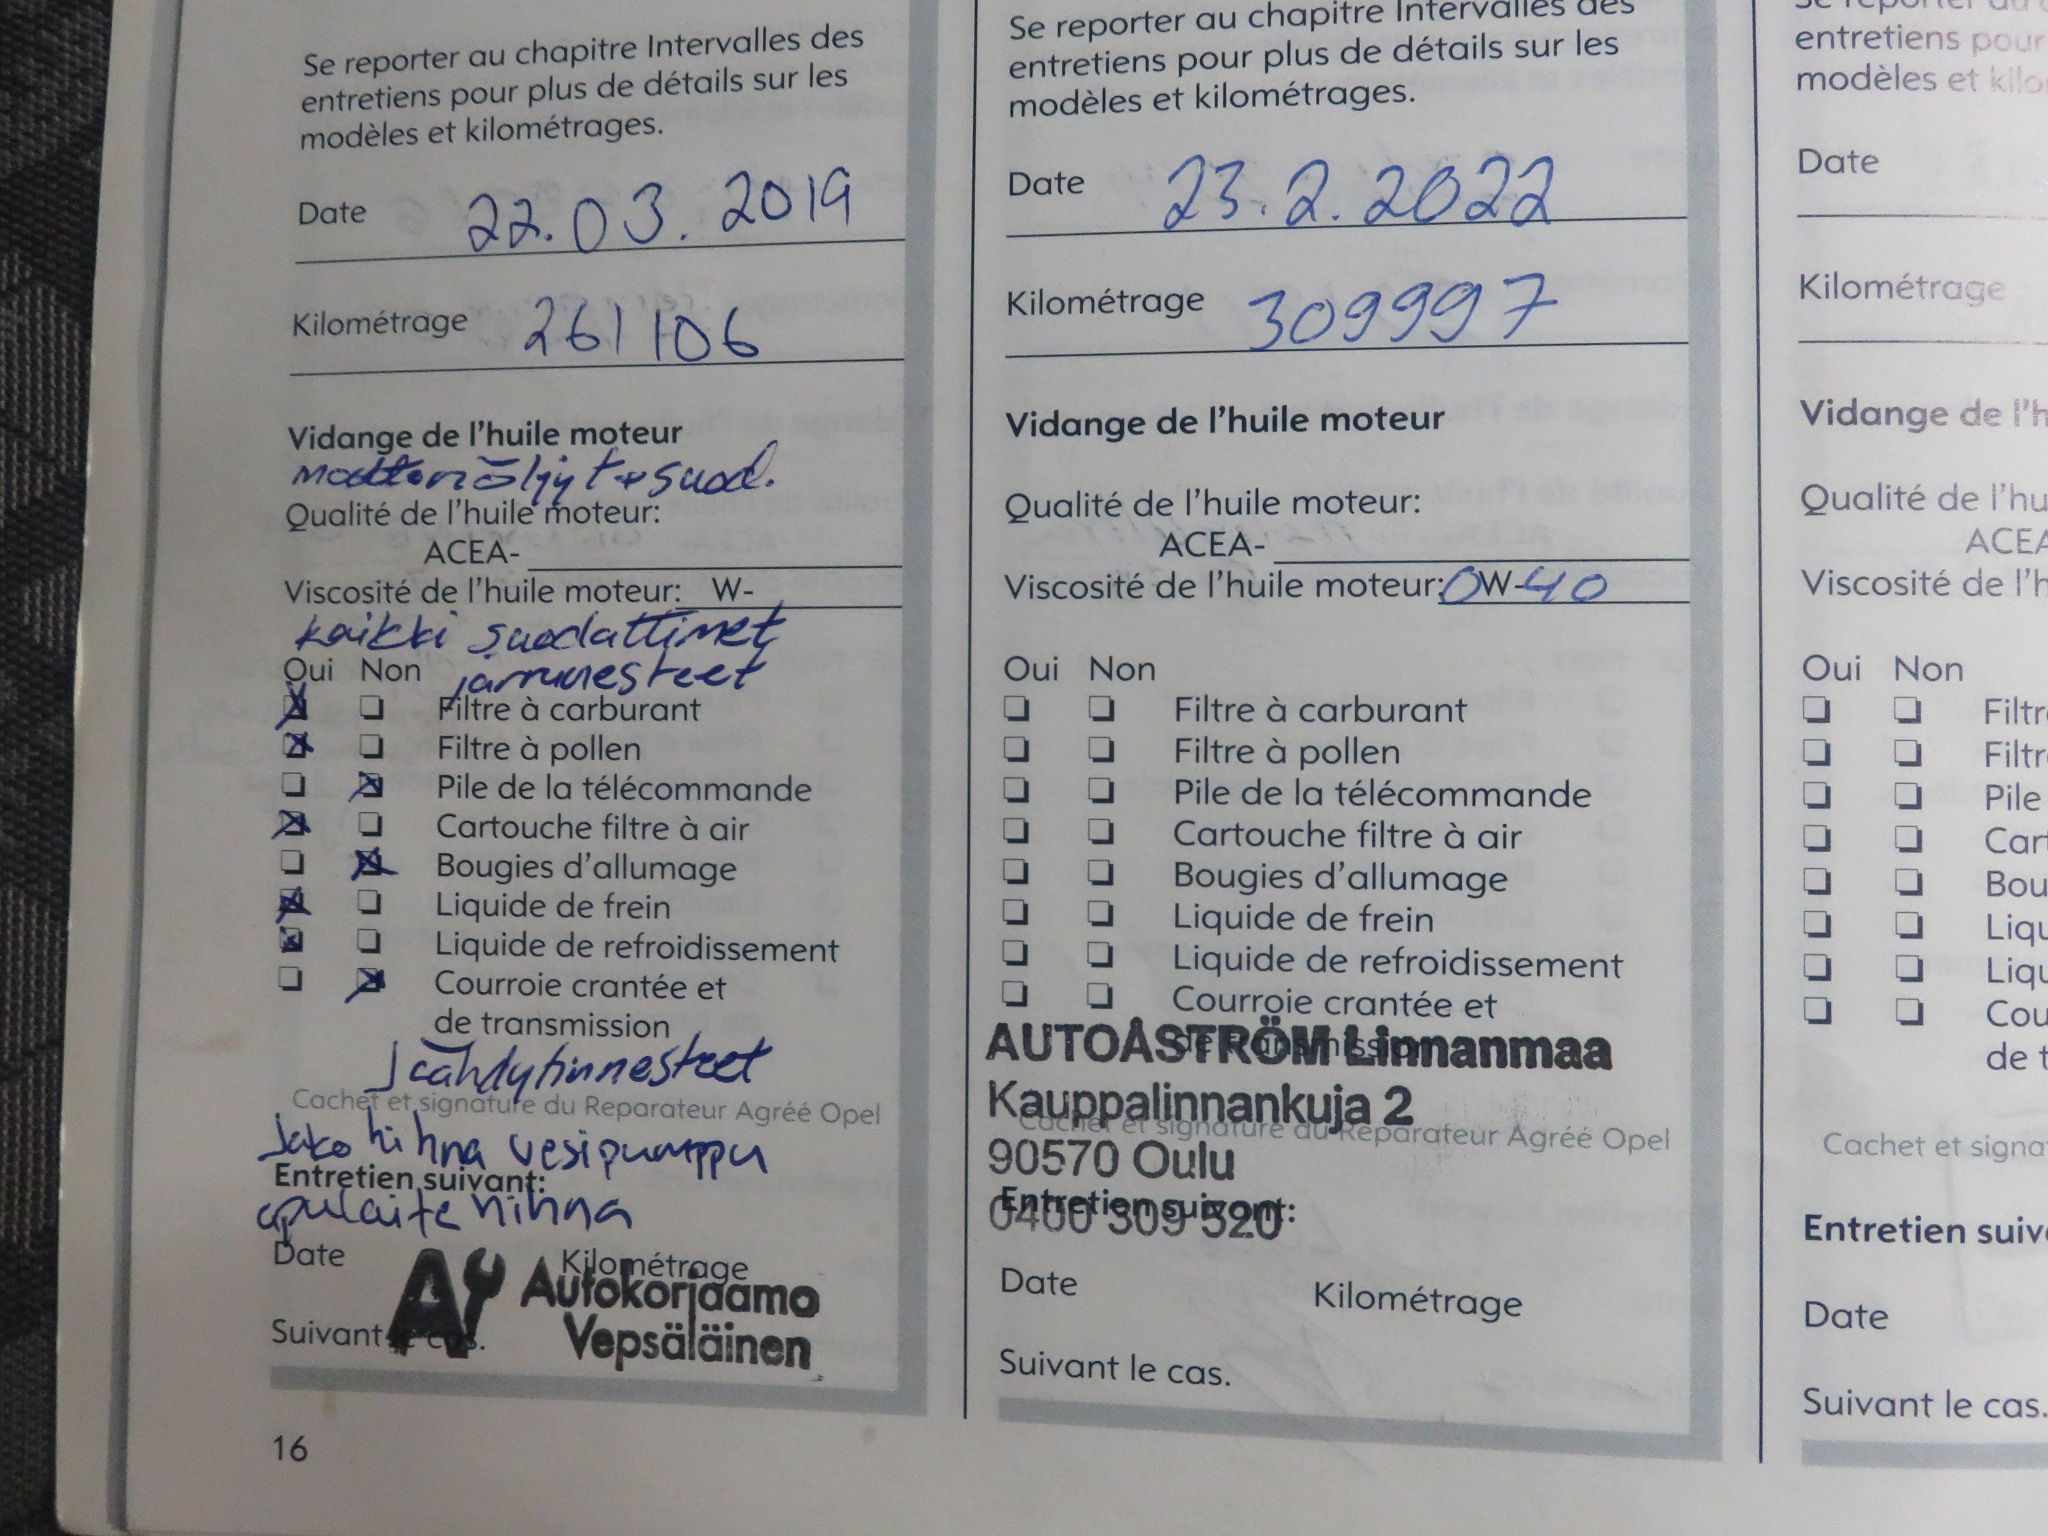 Se reporter au chapitre Intervalles des
entretiens pour plus de détails sur les
modèles et kilométrages.
Date 22.03.2019
Kilométrage 261106
Vidange de l'huile moteur
moottoriöljyt + suod.
Qualité de l'huile moteur:
ACEA-
Viscosité de l'huile moteur: W-
kaikki suodattimet
jarrunesteet
Oui Non
Filtre à carburant
Filtre à pollen
Pile de la télécommande
Cartouche filtre à air
Bougies d'allumage
Liquide de frein
Liquide de refroidissement
Courroie crantée et
de transmission
jäähdytinnesteet
Cachet et signature du Reparateur Agréé Opel
Jako hihna vesipumppu
Entretien suivant:
apulaite hihna
Date Kilométrage
Autokorjaamo
Vepsäläinen
Suivant le cas.
16
Se reporter au chapitre Intervalles des
entretiens pour plus de détails sur les
modèles et kilométrages.
Date 23.2.2022
Kilométrage 309997
Vidange de l'huile moteur
Qualité de l'huile moteur:
ACEA-
Viscosité de l'huile moteur: 0W-40
Oui Non
Filtre à carburant
Filtre à pollen
Pile de la télécommande
Cartouche filtre à air
Bougies d'allumage
Liquide de frein
Liquide de refroidissement
Courroie crantée et
de transmission
AUTOÅSTRÖM Linnanmaa
Kauppalinnankuja 2
Cachet et signature du Reparateur Agréé Opel
90570 Oulu
Entretien suivant:
0400 309 520
Date Kilométrage
Suivant le cas.
entretiens pour
modèles et kilo
Date
Kilométrage
Vidange de l'h
Qualité de l'hu
ACEA
Viscosité de l'h
Oui Non
Filtr
Filtr
Pile
Cart
Bou
Liqu
Liqu
Cou
de t
Cachet et signa
Entretien suiv
Date
Suivant le cas.